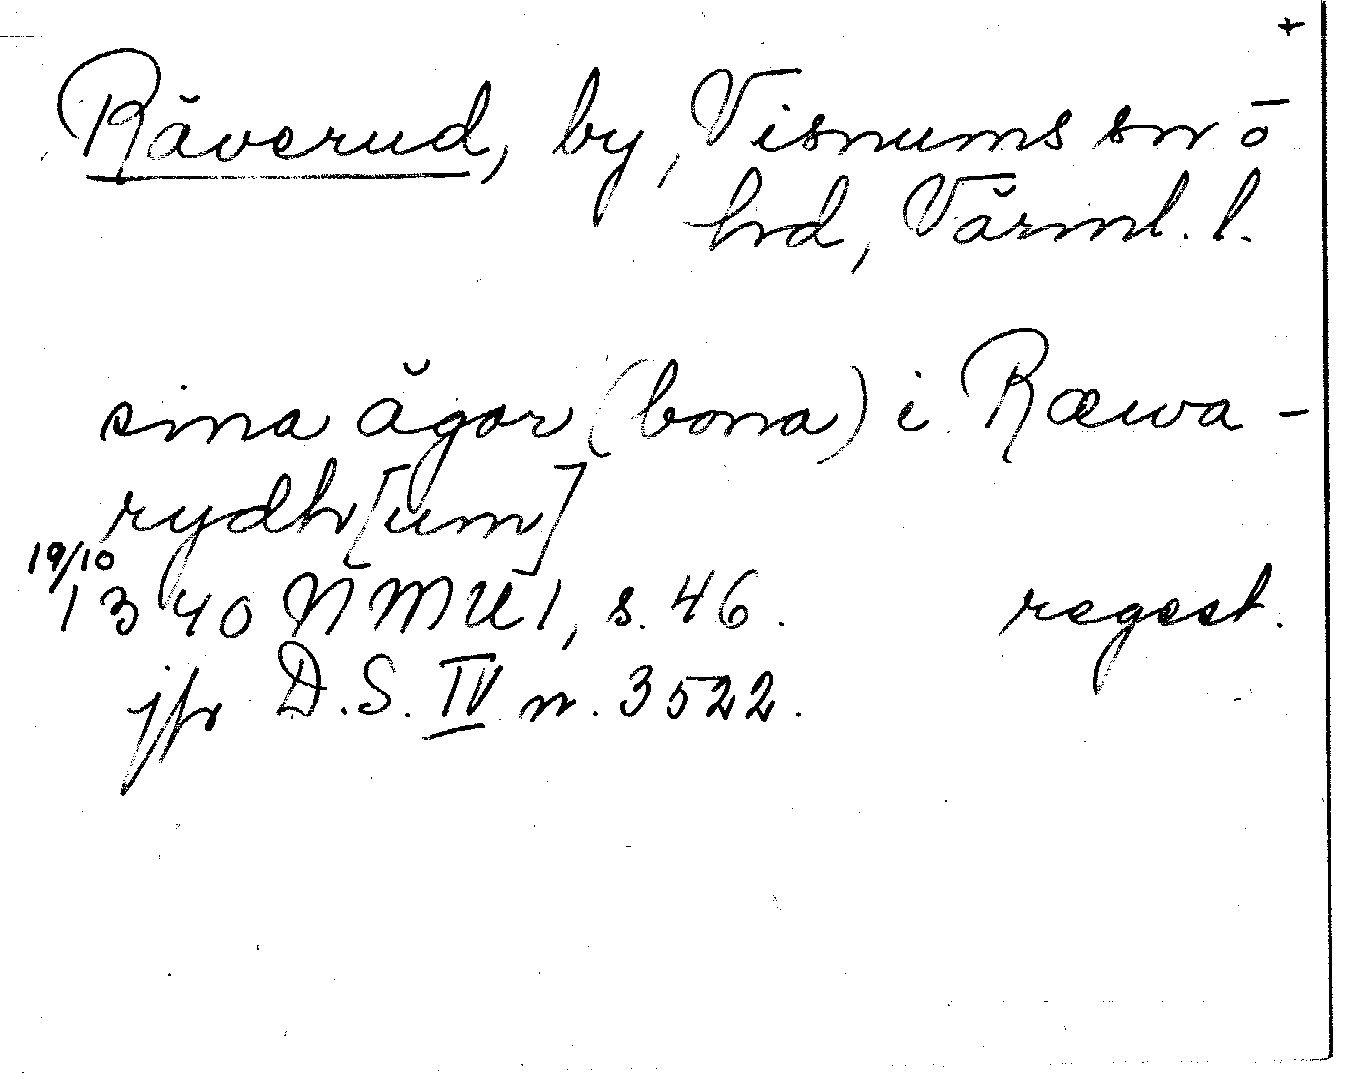 +
Räverud, by, Visnums sn o
hd, Värml. l.
sina ägor (bona) i Ræwa-
rydh[um]
19/10
1340 NMU 1, s. 46. regest.
jfr D.S. IV n. 3522.